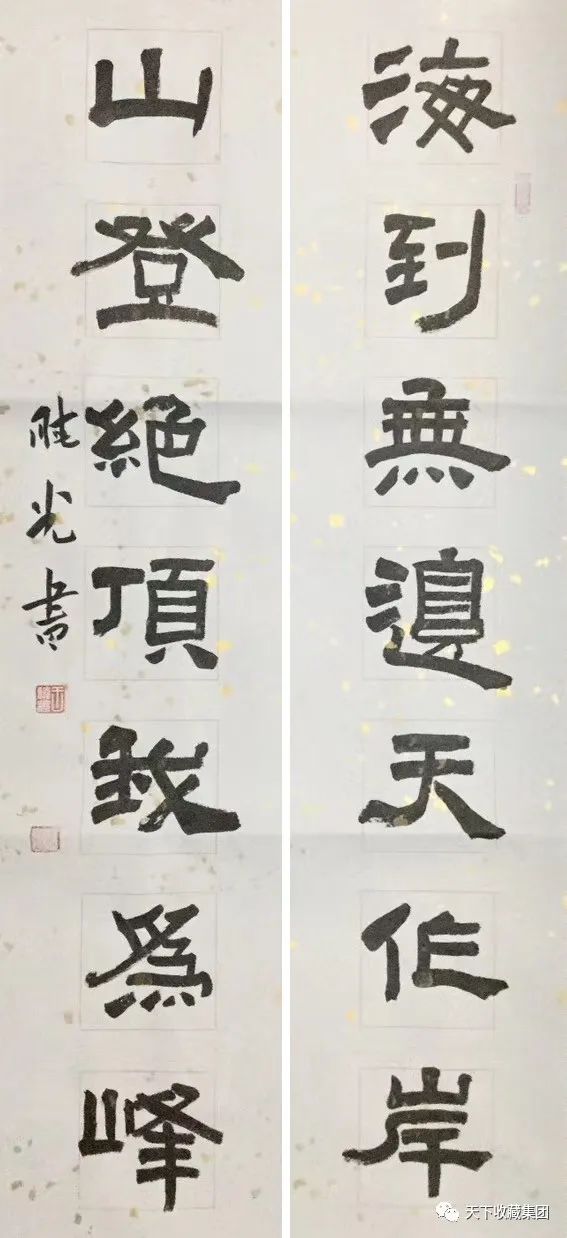 海到無邊天作岸
山登絕頂我為峰
光書
天下收藏集团